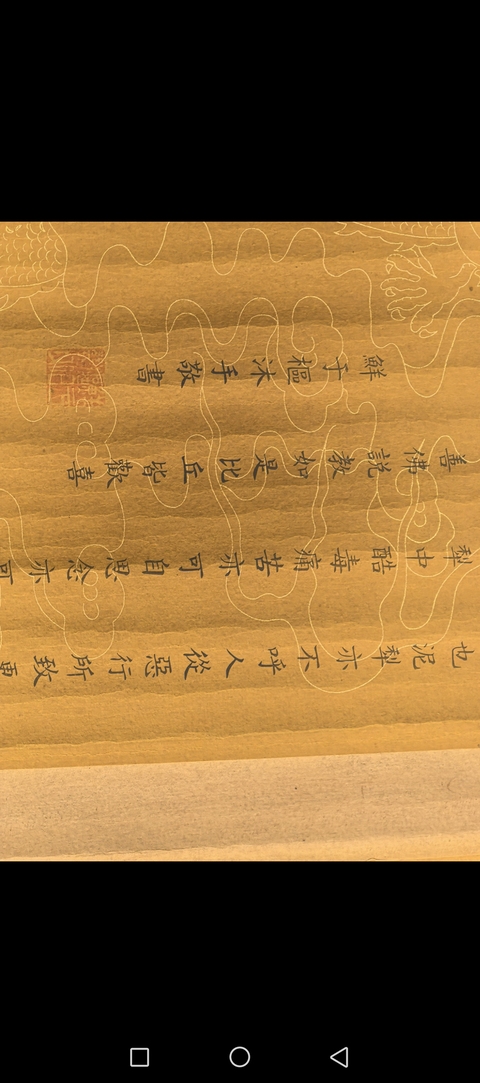 也泥犁亦不呼人從惡行所致
犁中酷毒痛苦亦可自思念亦可
善佛說教如是比丘皆歡喜
鮮于樞沐手敬書